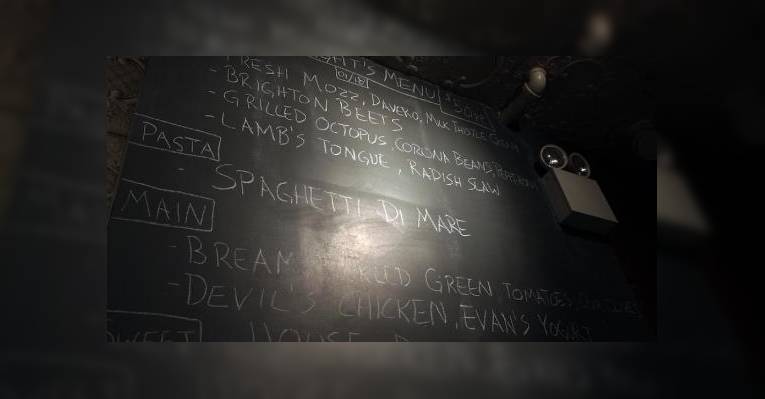 MENU
FRESH MOZZ, DAVERO, MILK THISTLE
- BRIGHTON BEETS
- GRILLED OCTOPUS, CORONA BEANS,
- LAMB'S TONGUE, RADISH SLAW
PASTA
- SPAGHETTI DI MARE
MAIN
- BREAM, GREEN TOMATOES,
- DEVIL'S CHICKEN, EVAN'S YOGURT
SWEET
HOUSE